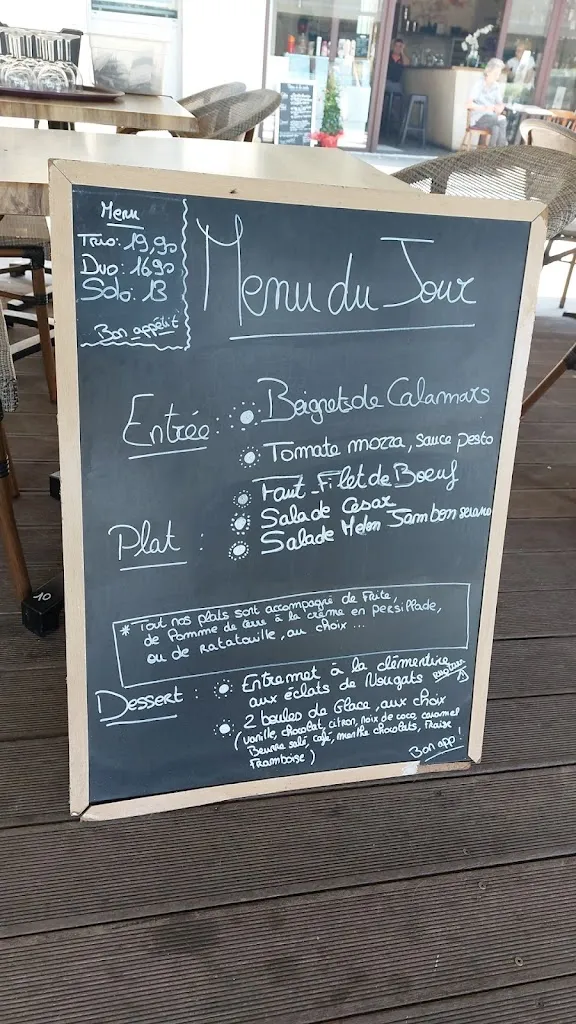 Menu
Trio: 19,90
Duo: 16,90
Solo: 13
Bon appétit
Menu du Jour
Entrée :
Beignets de Calamars
Tomate mozza, sauce pesto
Plat :
Faut-Filet de Boeuf
Salade Cesar
Salade Melon Jambon serano
* Tout nos plats sont accompagné de Frite,
de Pomme de terre à la crème en persillade,
ou de Ratatouille, au choix...
Dessert :
Entremet à la clémentine
aux éclats de Nougats
2 boules de Glace, aux choix
(vanille, chocolat, citron, noix de coco, caramel
Beurre salé, café, menthe chocolats, Fraise
Framboise)
Bon app!
10